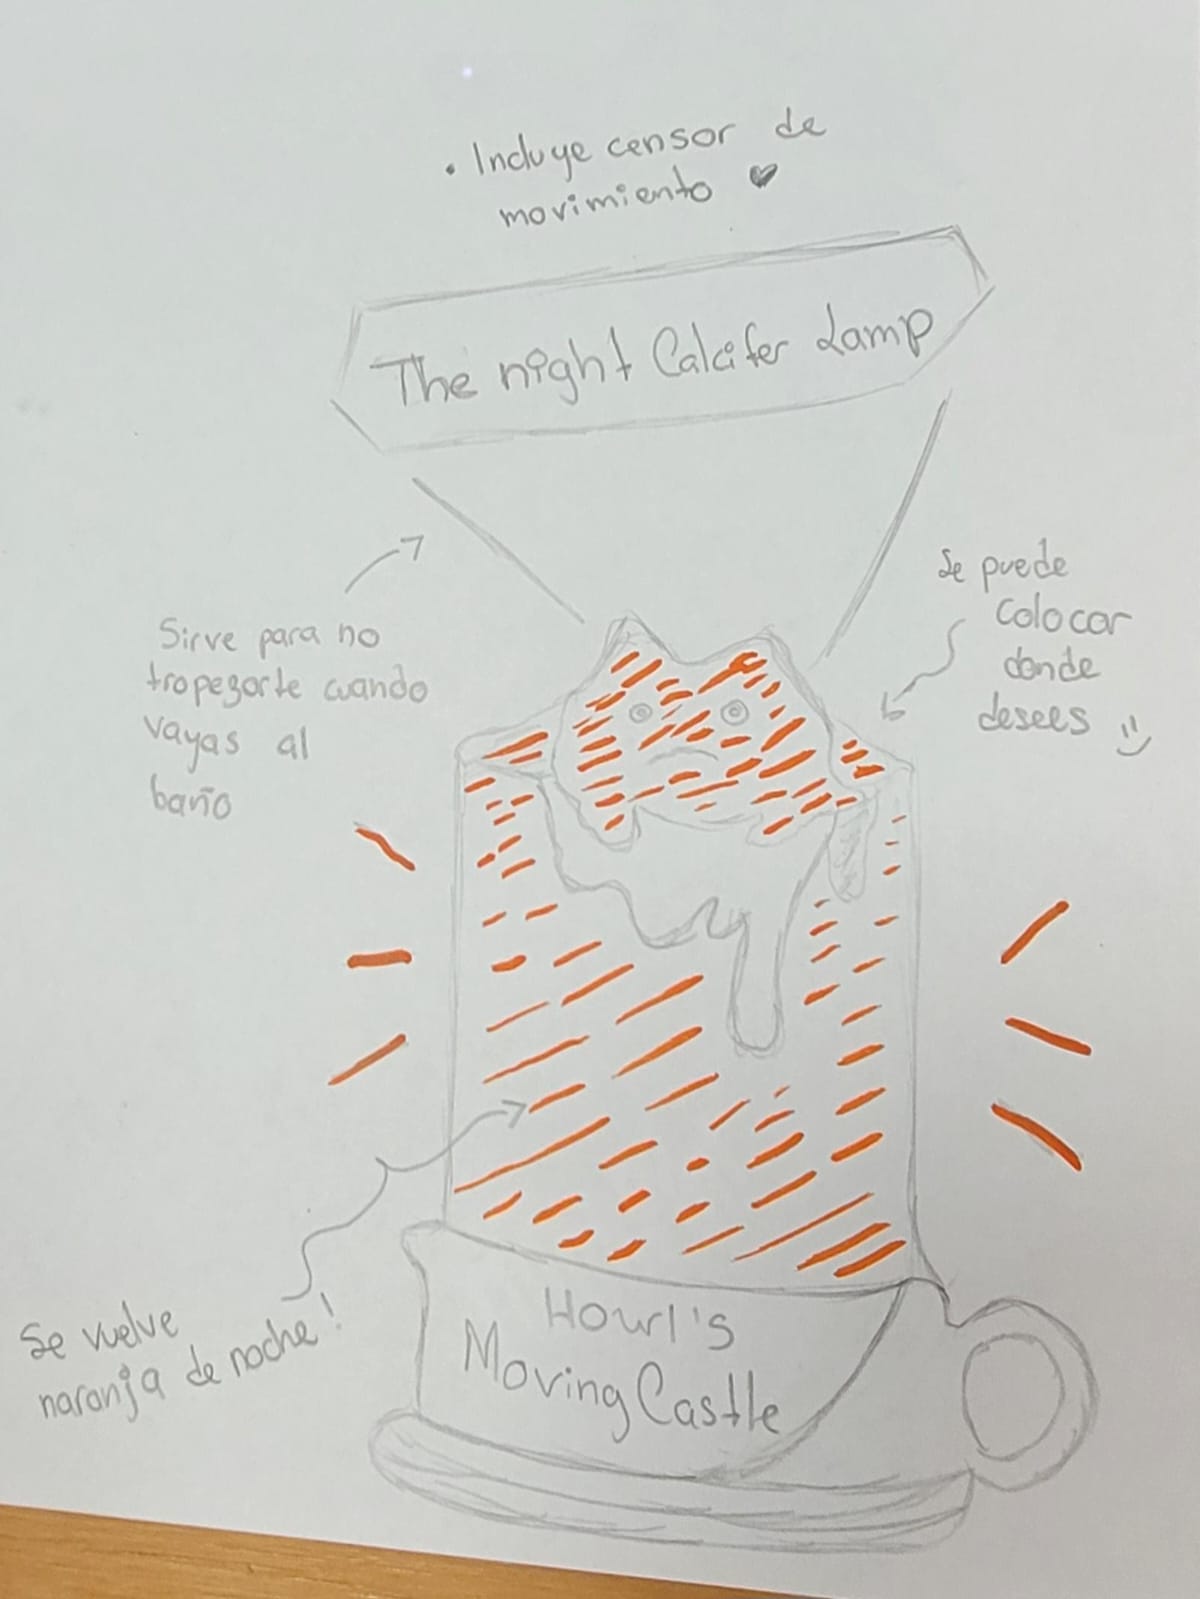 • Incluye censor de
movimiento ♥
The night Calcifer Lamp
Sirve para no
tropezarte cuando
vayas al
baño
Se puede
colocar
donde
desees :)
Se vuelve
naranja de noche!
Howl's
Moving Castle